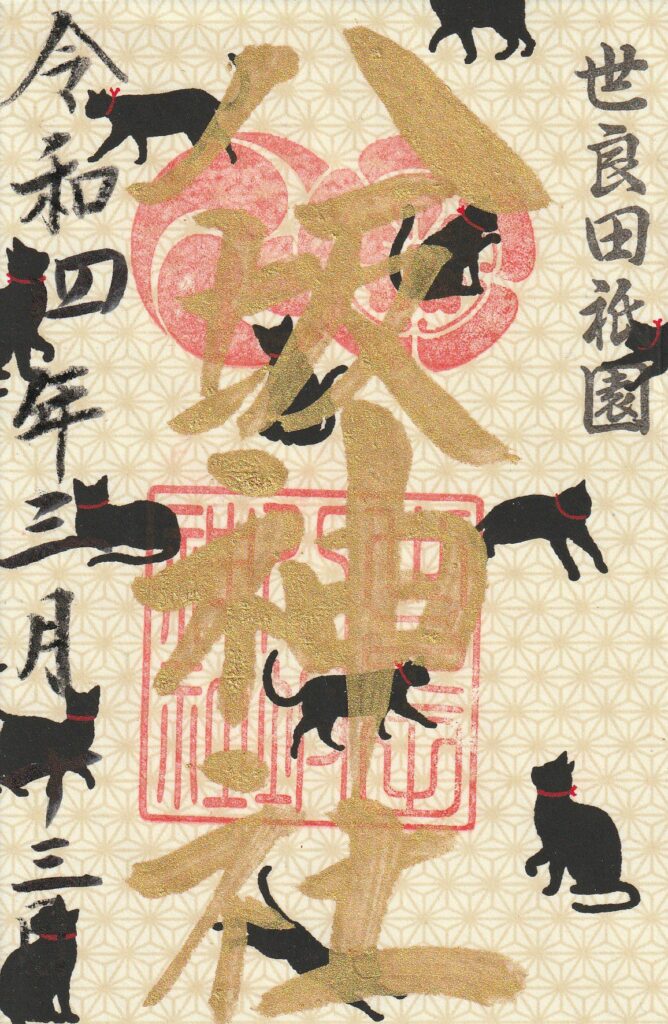 世良田祇園
八坂神社
令和四年三月十三日